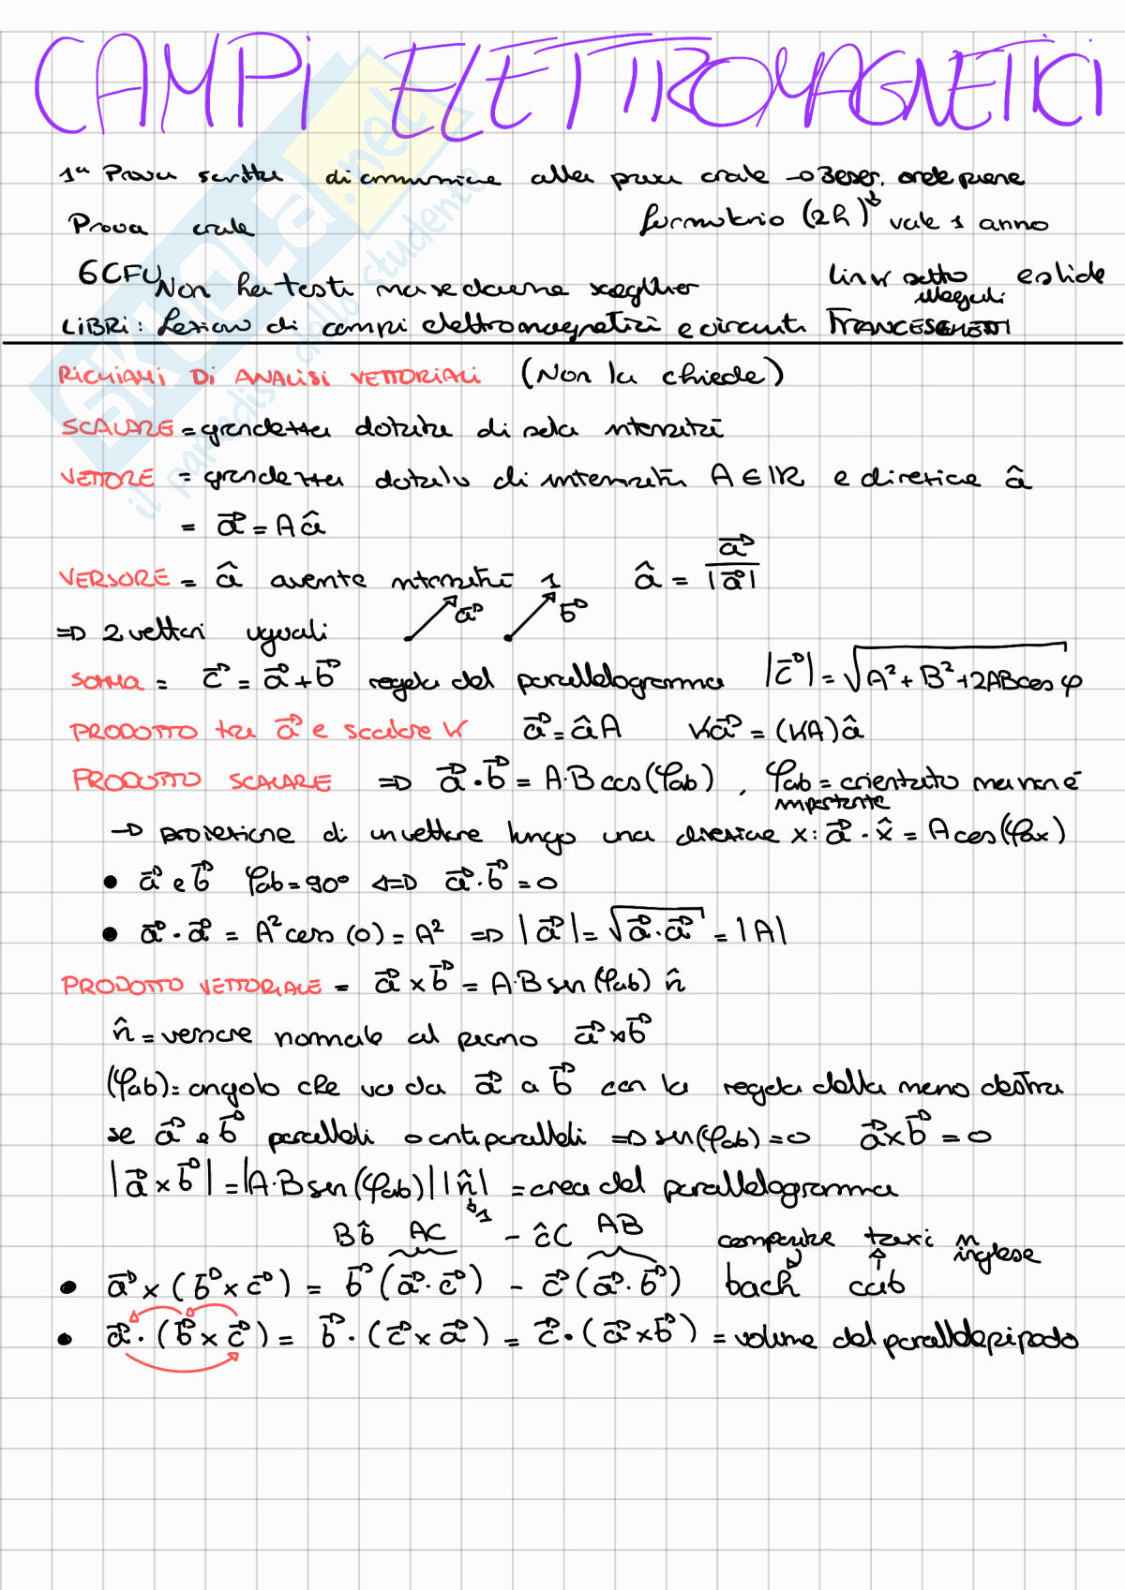 CAMPI ELETTROMAGNETICI
1ª Prova scritta di ammissione alla prova orale → 3 eser. onde piane
Prova orale formulario (2h) vale 1 anno
6CFU Non ha testi ma se dovesse scegliere link sotto e slide
illegali
LIBRI: Lezioni di campi elettromagnetici e circuiti FRANCESCHETTI
RICHIAMI DI ANALISI VETTORIALI (Non la chiede)
SCALARE = grandezza dotata di sola intensità
VETTORE = grandezza dotata di intensità A ∈ ℝ e direzione â
= a⃗ = A â
VERSORE = â avente intensità 1 â = a⃗ / |a⃗|
⇒ 2 vettori uguali a⃗ b⃗
SOMMA = c⃗ = a⃗ + b⃗ regola del parallelogramma |c⃗| = √(A² + B² + 2ABcos φ)
PRODOTTO tra a⃗ e scalare K a⃗ = â A Ka⃗ = (KA) â
PRODOTTO SCALARE ⇒ a⃗ · b⃗ = A·B cos(φab), φab = orientato ma non è
importante
→ proiezione di un vettore lungo una direzione x: a⃗ · x̂ = A cos(φax)
• a⃗ e b⃗ φab = 90° ⇔ a⃗ · b⃗ = 0
• a⃗ · a⃗ = A² cos (0) = A² ⇒ |a⃗| = √(a⃗ · a⃗) = |A|
PRODOTTO VETTORIALE = a⃗ × b⃗ = A·B sen (φab) n̂
n̂ = versore normale al piano a⃗ × b⃗
(φab) = angolo che va da a⃗ a b⃗ con la regola della mano destra
se a⃗ e b⃗ paralleli o antiparalleli ⇒ sen(φab) = 0 a⃗ × b⃗ = 0
|a⃗ × b⃗| = |A·B sen (φab)| |n̂| = area del parallelogramma
1
B b̂ AC - ĉ C AB taxi in inglese
• a⃗ × (b⃗ × c⃗) = b⃗ (a⃗ · c⃗) - c⃗ (a⃗ · b⃗) back cab
• a⃗ · (b⃗ × c⃗) = b⃗ · (c⃗ × a⃗) = c⃗ · (a⃗ × b⃗) = volume del parallelepipedo
SKUOLA.net
il paradiso dello studente